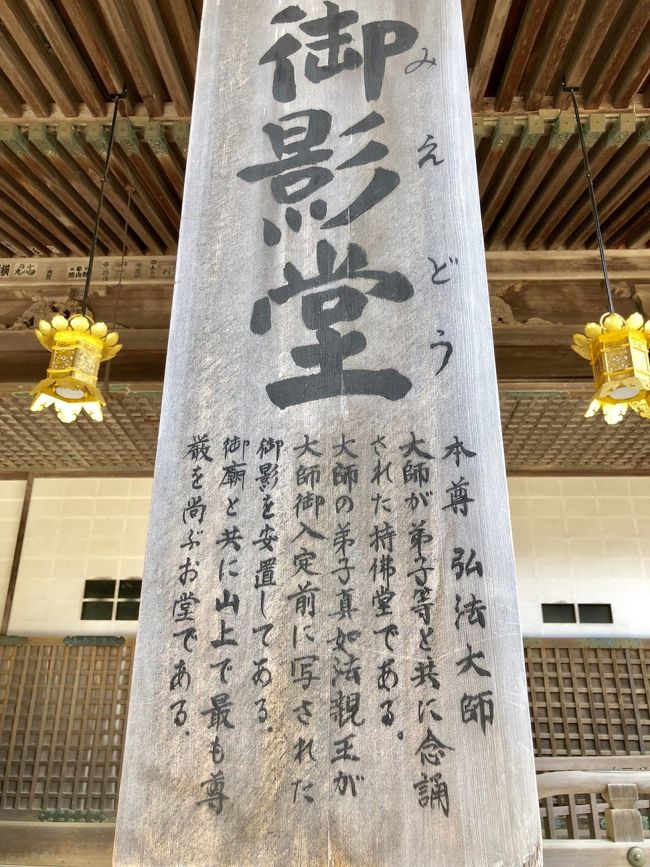 御影堂
みえどう
本尊 弘法大師
大師が弟子等と共に念誦
された持佛堂である。
大師の弟子真如法親王が
大師御入定前に写された
御影を安置してある。
御廟と共に山上で最も尊
厳を尚ぶお堂である.